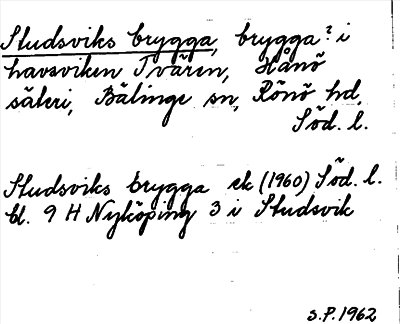 Studsviks brygga, brygga? i
havsviken Tvären, Hånö
säteri, Bälinge sn, Rönö hd,
Söd. l.
Studsviks brygga ek (1960) Söd. l.
bl. 9 H Nyköping 3 i Studsvik
S.P. 1962